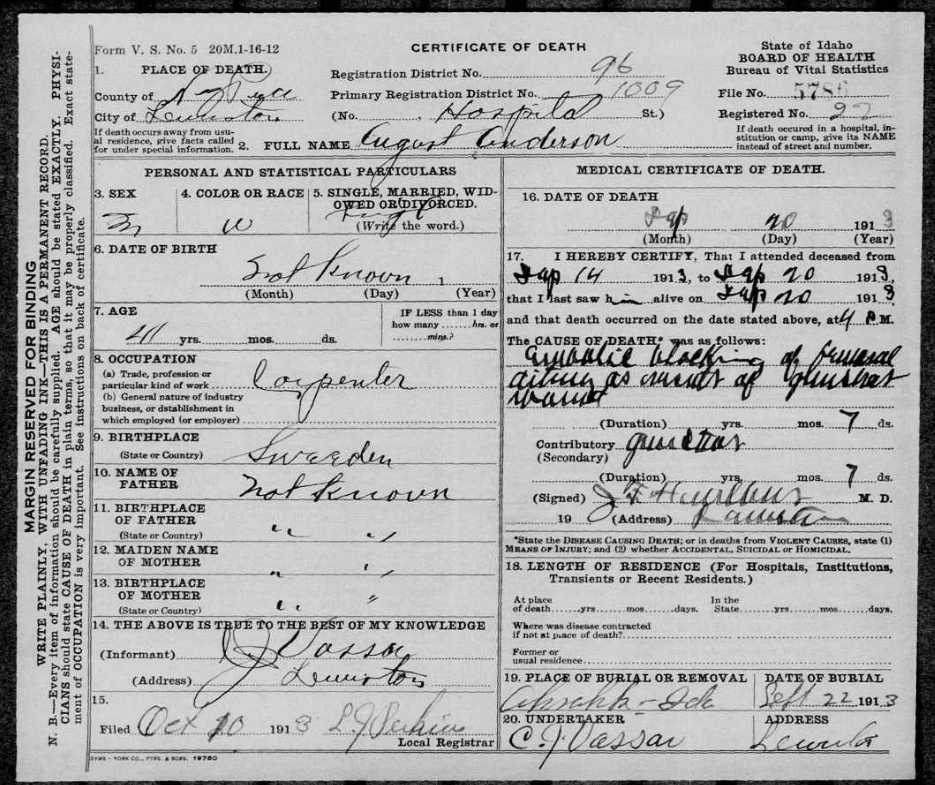 MARGIN RESERVED FOR BINDING
WRITE PLAINLY, WITH UNFADING INK—THIS IS A PERMANENT RECORD.
N. B.—Every item of information should be carefully supplied. AGE should be stated EXACTLY. PHYSI-
CIANS should state CAUSE OF DEATH in plain terms, so that it may be properly classified. Exact state-
ment of OCCUPATION is very important. See instructions on back of certificate.
Form V. S. No. 5 20M.1-16-12
CERTIFICATE OF DEATH
State of Idaho
BOARD OF HEALTH
Bureau of Vital Statistics
File No. 5786
Registered No.
1. PLACE OF DEATH.
County of Nez Perce
City of Lewiston
If death occurs away from usu-
al residence, give facts called
for under special information.
Registration District No. 96
Primary Registration District No. 1009
(No. , Hospital St.)
If death occured in a hospital, in-
stitution or camp, give its NAME
instead of street and number.
2. FULL NAME August Anderson
PERSONAL AND STATISTICAL PARTICULARS
3. SEX
M
4. COLOR OR RACE
W
5. SINGLE, MARRIED, WID-
OWED OR DIVORCED.
(Write the word.)
6. DATE OF BIRTH
Not Known 1
(Month) (Day) (Year)
7. AGE
yrs. mos. ds.
IF LESS than 1 day
how many ...... hrs. or
...... mins.?
8. OCCUPATION
(a) Trade, profession or
particular kind of work Carpenter
(b) General nature of industry
business, or dstablishment in
which employed (or employer)
9. BIRTHPLACE
(State or Country) Sweeden
10. NAME OF
FATHER Not Known
11. BIRTHPLACE
OF FATHER
(State or Country) " "
12. MAIDEN NAME
OF MOTHER " "
13. BIRTHPLACE
OF MOTHER
(State or Country) " "
14. THE ABOVE IS TRUE TO THE BEST OF MY KNOWLEDGE
(Informant) Vassar
(Address) Lewiston
15.
Filed Oct 10 1913 L. J. Perkins
Local Registrar
SYMS - YORK CO., PTRS. & BDRS. 19760
MEDICAL CERTIFICATE OF DEATH.
16. DATE OF DEATH
Sep 20 1913
(Month) (Day) (Year)
17. I HEREBY CERTIFY, That I attended deceased from
Sep 14 1913, to Sep 20 1913,
that I last saw him alive on Sep 20 1913
and that death occurred on the date stated above, at 4 P M.
The CAUSE OF DEATH* was as follows:
Embolic blocking of femoral
artery as result of gunshot
wound
(Duration) yrs. mos. 7 ds.
Contributory gunshot
(Secondary)
(Duration) yrs. mos. 7 ds.
(Signed) M. D.
19 (Address) Lewiston
*State the DISEASE CAUSING DEATH; or in deaths from VIOLENT CAUSES, state (1)
MEANS OF INJURY; and (2) whether ACCIDENTAL, SUICIDAL or HOMICIDAL.
18. LENGTH OF RESIDENCE (For Hospitals, Institutions,
Transients or Recent Residents.)
At place
of death ...... yrs. ...... mos. ...... days.
In the
State ...... yrs. ...... mos. ...... days.
Where was disease contracted
if not at place of death?
Former or
usual residence
19. PLACE OF BURIAL OR REMOVAL
Ahsahka - Ida
DATE OF BURIAL
Sept 22 1913
20. UNDERTAKER
C. J. Vassar
ADDRESS
Lewiston